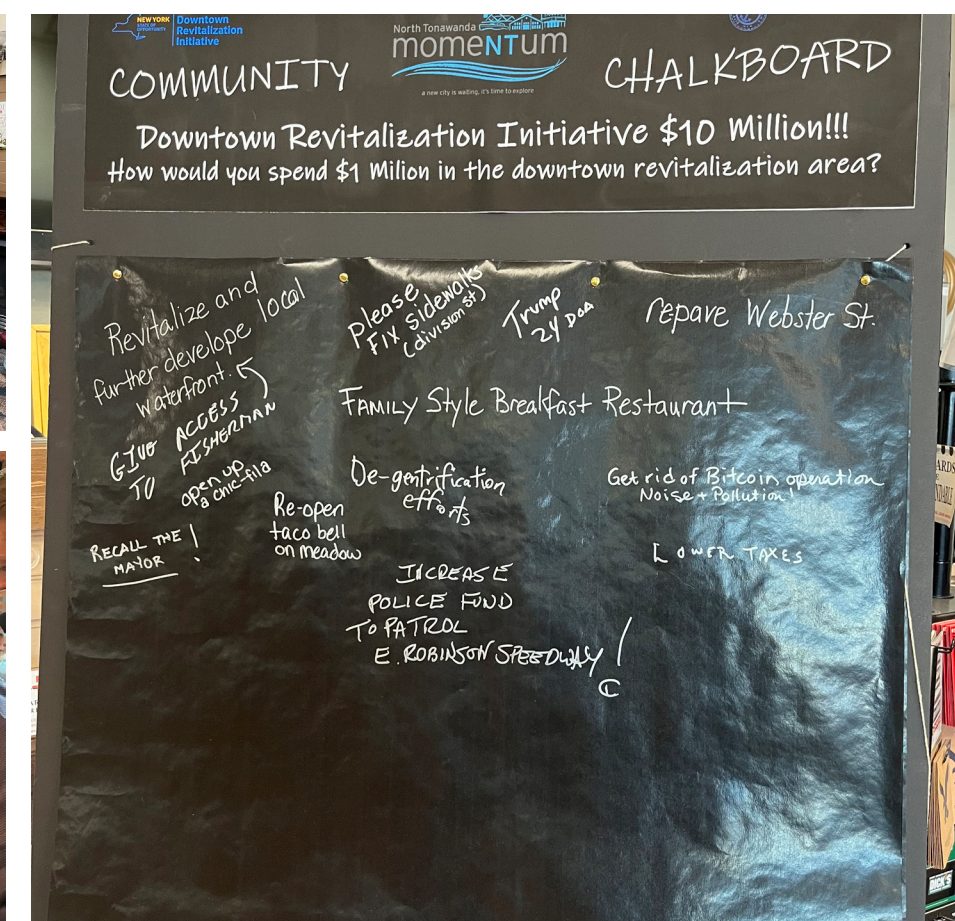 NEW YORK
STATE OF
OPPORTUNITY
Downtown
Revitalization
Initiative
North Tonawanda
momeNTum
a new city is waiting, it's time to explore
COMMUNITY
CHALKBOARD
Downtown Revitalization Initiative $10 Million!!!
How would you spend $1 Milion in the downtown revitalization area?
Revitalize and
further develope local
waterfront.
GIVE ACCESS
TO FISHERMAN
open up
a chic-fila
RECALL THE
MAYOR !
Re-open
taco bell
on meadow
Please
Fix Sidewalks
(division St)
Trump
24 DOA
repave Webster St.
FAMILY Style Breakfast Restaurant
De-gentrification
efforts
Get rid of Bitcoin operation
Noise + Pollution!
LOWER TAXES
INCREASE
POLICE FUND
TO PATROL
E. ROBINSON SPEEDWAY !
ARDS
DICK'S